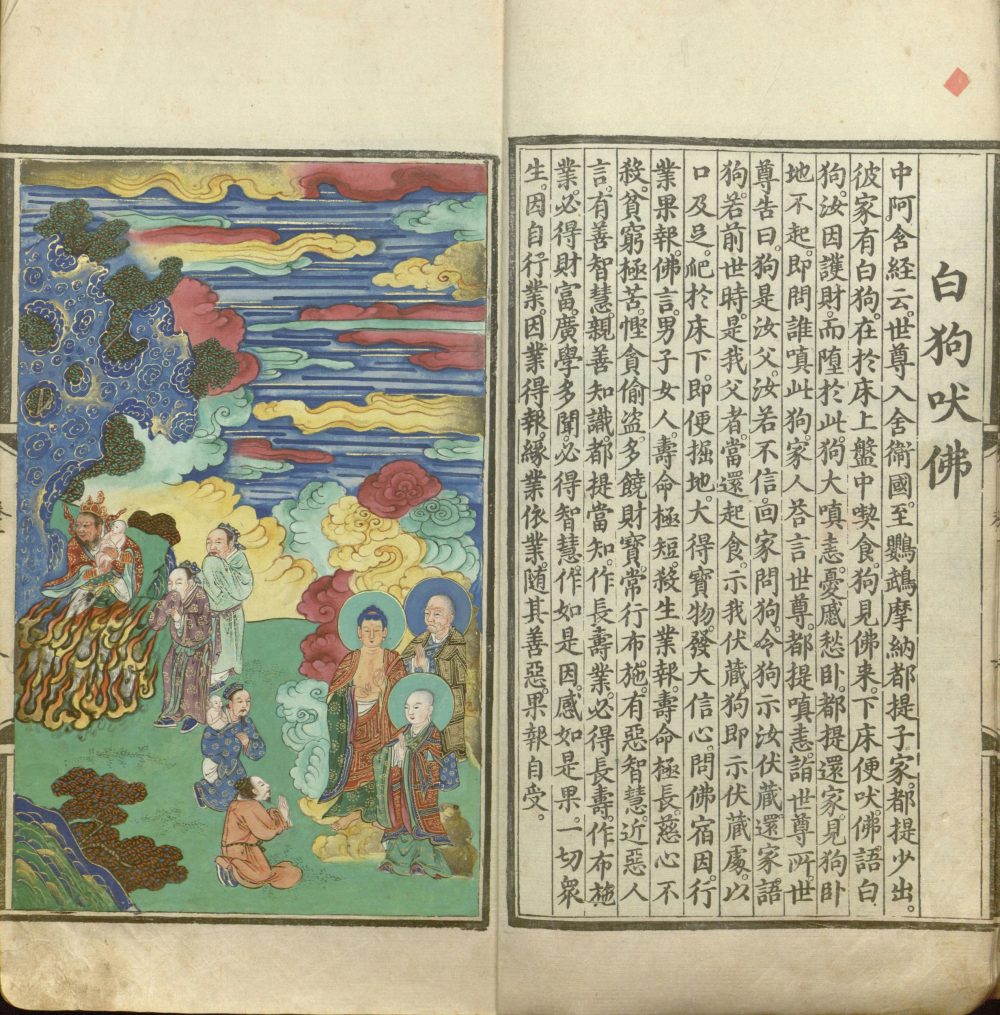 白狗吠佛
中阿含経云。世尊入舍衛國。至鸚鵡摩納都提子家。都提少出。
彼家有白狗。在於床上盤中喫食。狗見佛来。下床便吠。佛語白
狗。汝因護財。而堕於此。狗大嗔恚。憂慼愁卧。都提還家。見狗卧
地不起。即問誰嗔此狗。家人荅言世尊。都提嗔恚。詣世尊所。世
尊告曰。狗是汝父。汝若不信。回家問狗。令狗示汝伏藏。還家語
狗。若前世時。是我父者。當還起食。示我伏藏。狗即示伏藏處。以
口及足。爬於床下。即便掘地。大得寶物。發大信心。問佛宿因。行
業果報。佛言。男子女人。壽命極短。殺生業報。壽命極長。慈心不
殺。貧窮極苦。慳貪偷盜。多饒財寶。常行布施。有惡智慧。近惡人
言。有善智慧。親善知識。都提當知。作長壽業。必得長壽。作布施
業。必得財富。廣學多聞。必得智慧。作如是因。感如是果。一切衆
生。因自行業。因業得報。緣業依業。随其善惡。果報自受。